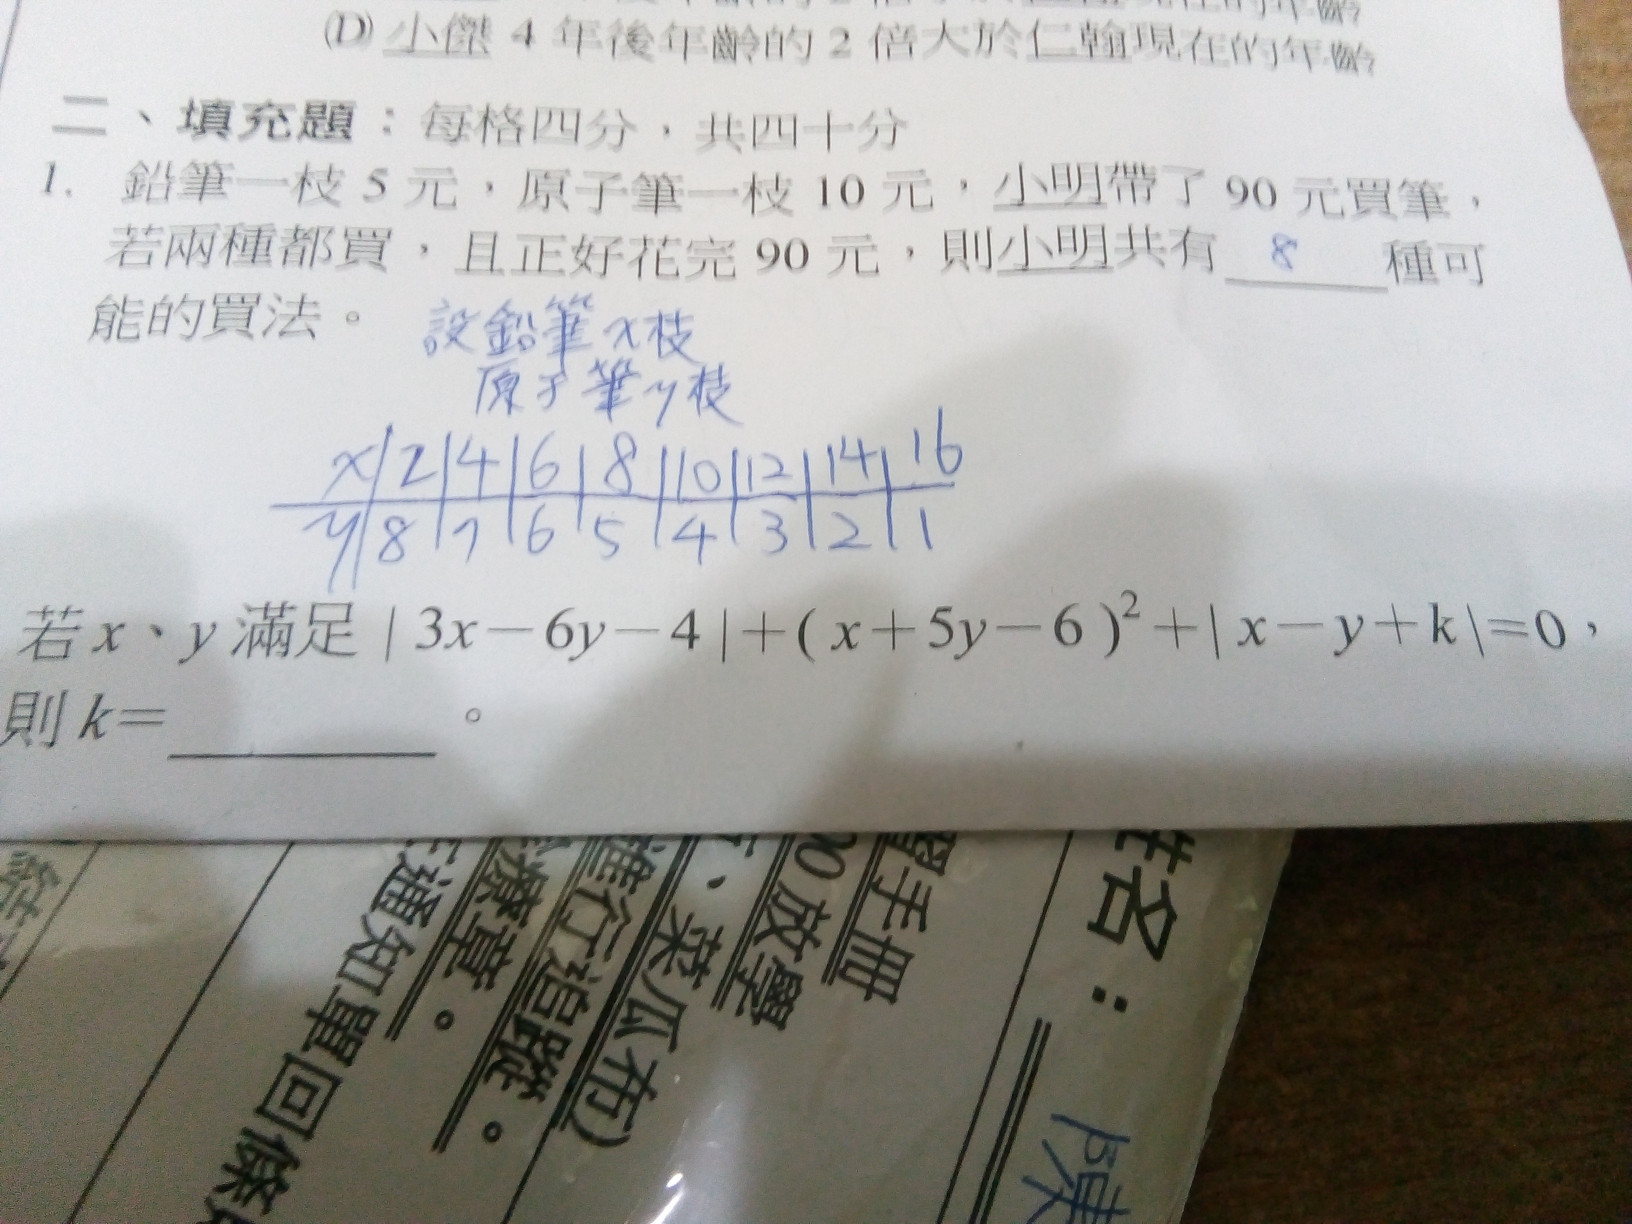 (D) 小傑 4 年後年齡的 2 倍大於仁翰現在的年齡
二、填充題：每格四分，共四十分
1. 鉛筆一枝 5 元，原子筆一枝 10 元，小明帶了 90 元買筆，
若兩種都買，且正好花完 90 元，則小明共有 8 種可
能的買法。
設鉛筆x枝
原子筆y枝
x 2 4 6 8 10 12 14 16
y 8 7 6 5 4 3 2 1
若 x、y 滿足 | 3x－6y－4 |＋( x＋5y－6 )²＋| x－y＋k |=0，
則 k=______。
姓名：陳
習手冊
00 放學
、菜瓜布)
進行追蹤。
療章。
通知單回條